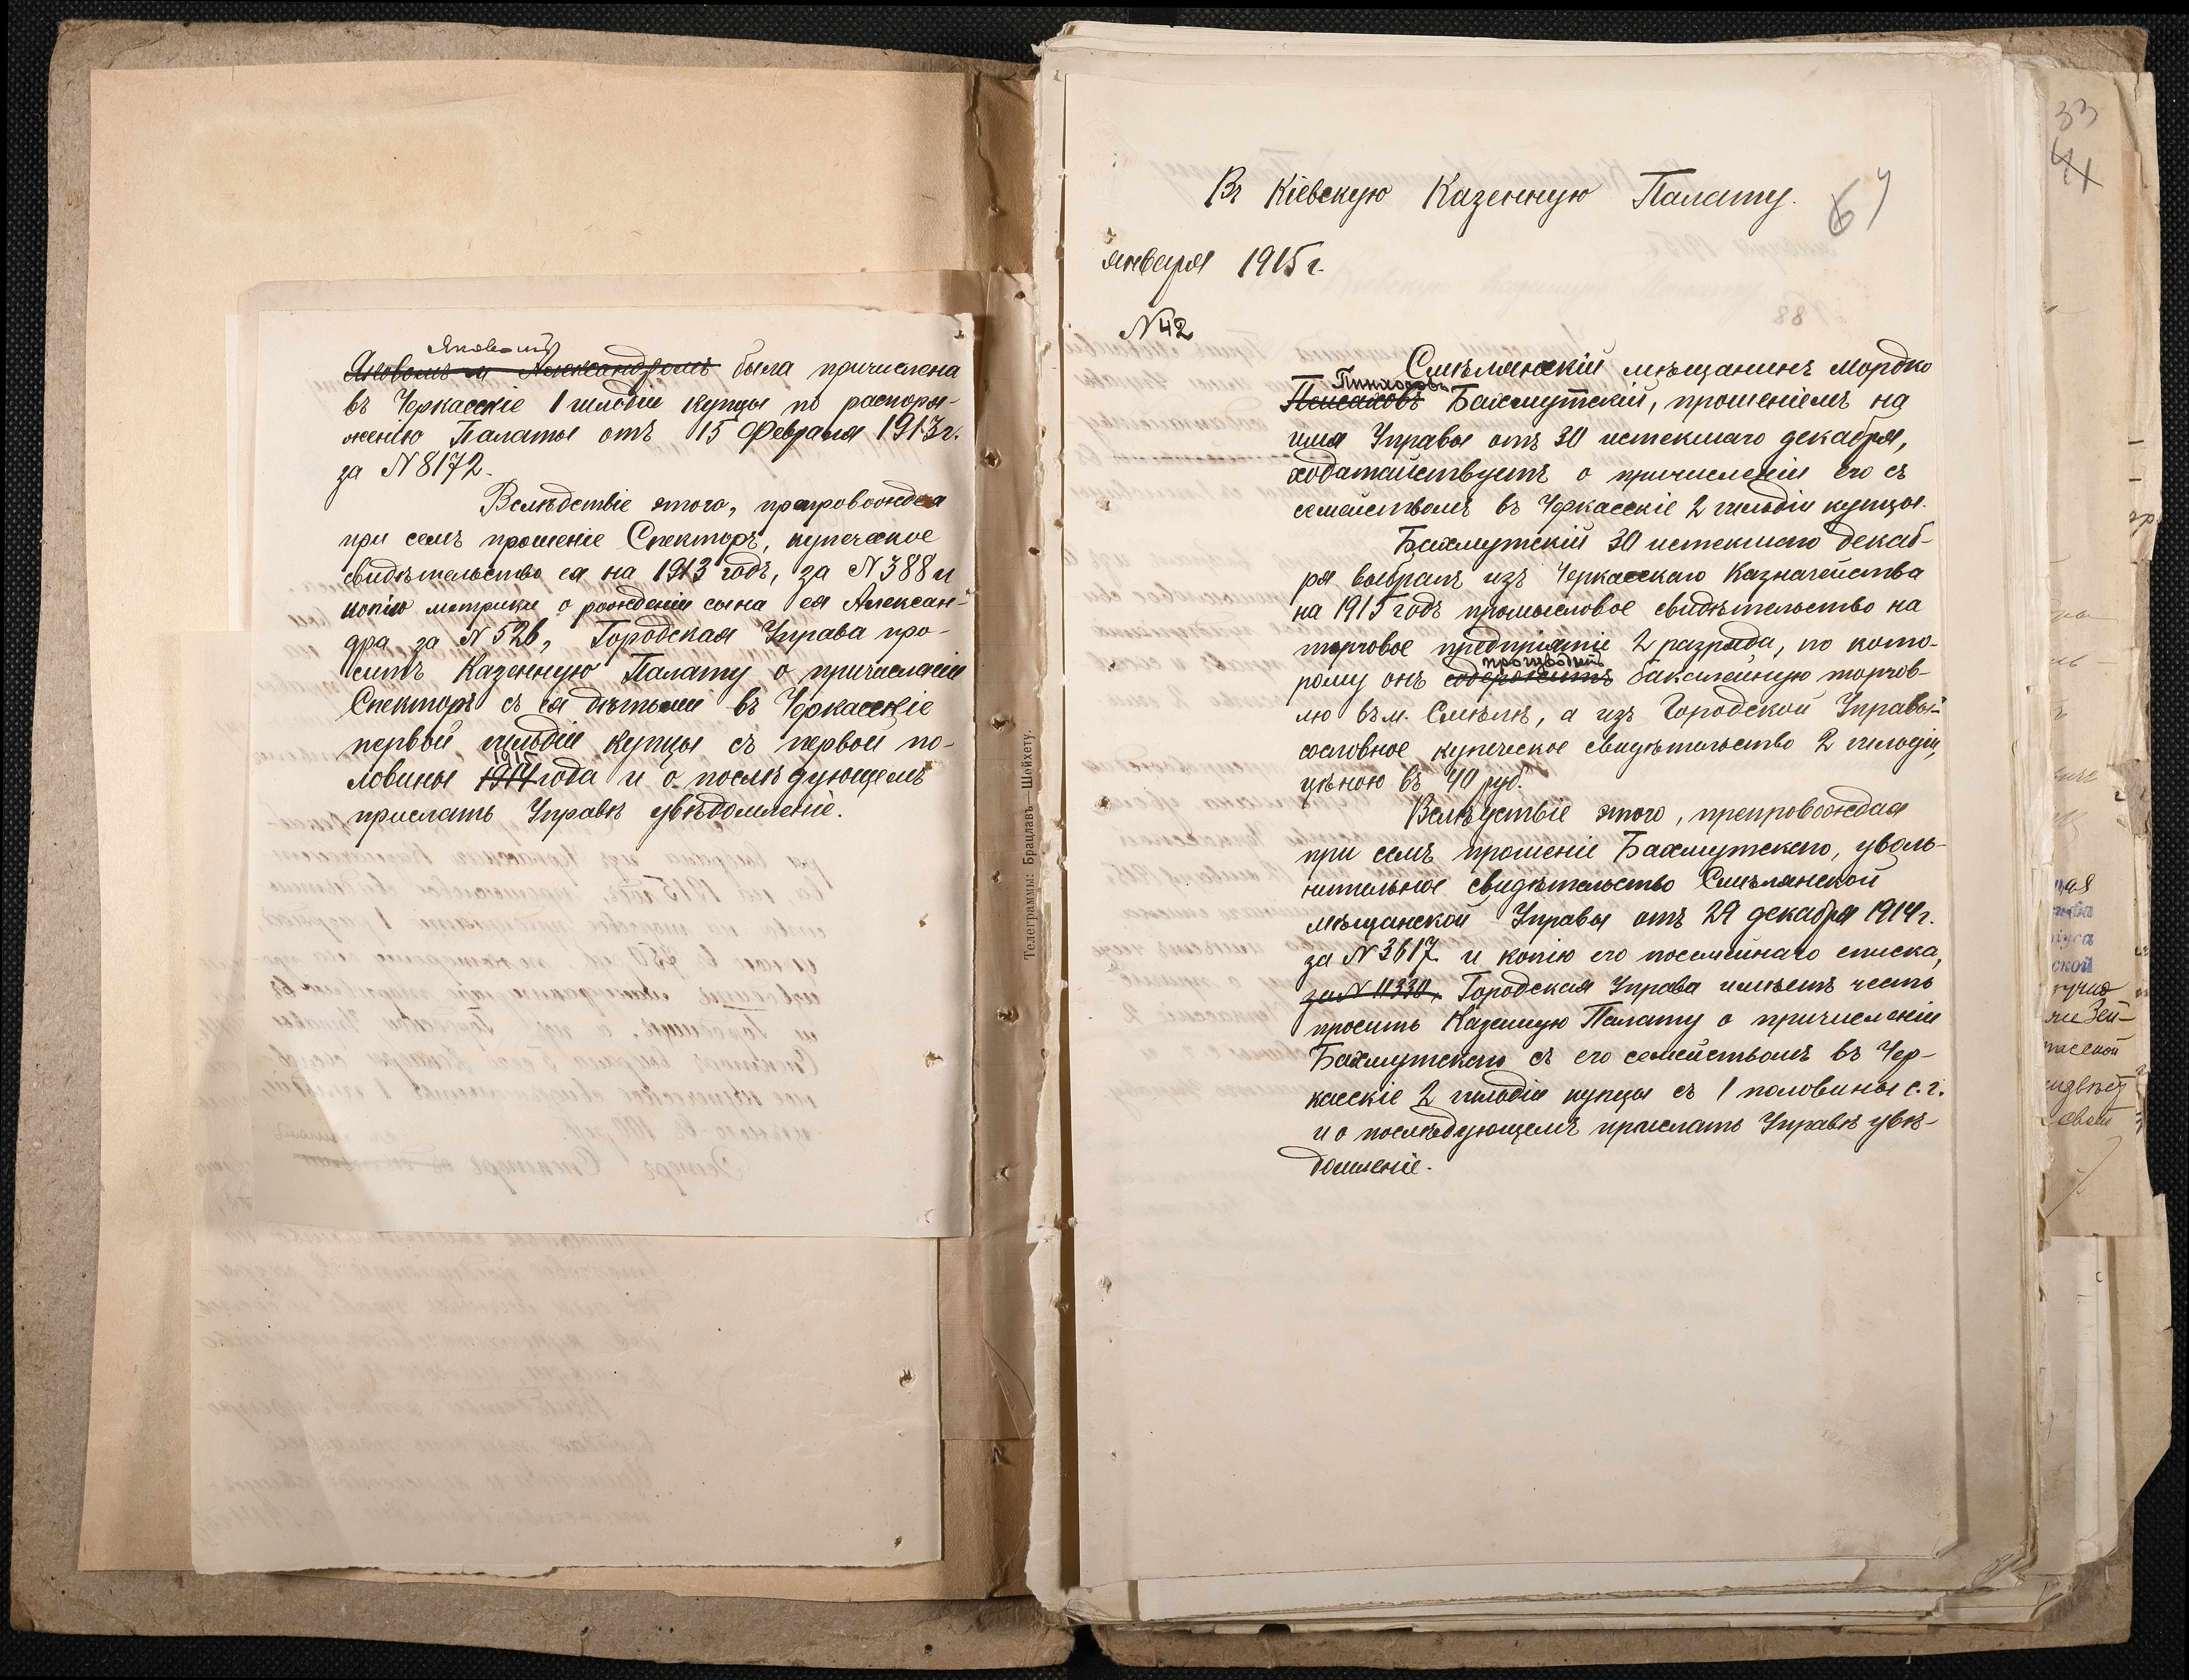 Яковомъ
Яковомъ и Александромъ была причислена
въ Черкасскіе 1 гильдіи купцы по распоря-
женію Палаты отъ 15 Февраля 1913 г.
за N 8172.
Вслѣдствіе этого, препровождая
при семъ прошеніе Спекторъ, купеческое
свидѣтельство ея на 1913 годъ, за N 388 и
копію метрики о рожденіи сына ея Алексан-
дра за N 526, Городская Управа про-
ситъ Казенную Палату о причисленіи
Спекторъ съ ея дѣтьми въ Черкасскіе
первой гильдіи купцы съ первой по-
1915
ловины 1914 года и о послѣдующемъ
прислать Управѣ увѣдомленіе.
Телеграммы: Брацлавъ—Шейхету.
Въ Кіевскую Казенную Палату.
67
января 1915 г.
N 42
Смѣлянскій мѣщанинъ Мордко
Пинхосовъ
Пейсаховъ Бахмутскій, прошеніемъ на
имя Управы отъ 30 истекшаго декабря,
ходатайствуетъ о причисленіи его съ
семействомъ въ Черкасскіе 2 гильдіи купцы.
Бахмутскій 30 истекшаго декаб-
ря выбралъ изъ Черкасскаго Казначейства
на 1915 годъ промысловое свидѣтельство на
торговое предпріятіе 2 разряда, по кото-
производитъ
рому онъ содержитъ бакалейную торгов-
лю въ м. Смѣлѣ, а изъ Городской Управы-
сословное купеческое свидѣтельство 2 гильдіи,
цѣною въ 40 руб.
Вслѣдствіе этого, препровождая
при семъ прошеніе Бахмутскаго, уволь-
нительное свидѣтельство Смѣлянской
мѣщанской Управы отъ 29 декабря 1914 г.
за N 3617 и копію его посемейнаго списка,
за N 11330, Городская Управа имѣетъ честь
просить Казенную Палату о причисленіи
Бахмутскаго съ его семействомъ въ Чер-
касскіе 2 гильдіи купцы съ 1 половины с. г.
и о послѣдующемъ прислать Управѣ увѣ-
домленіе.
33
41
ской